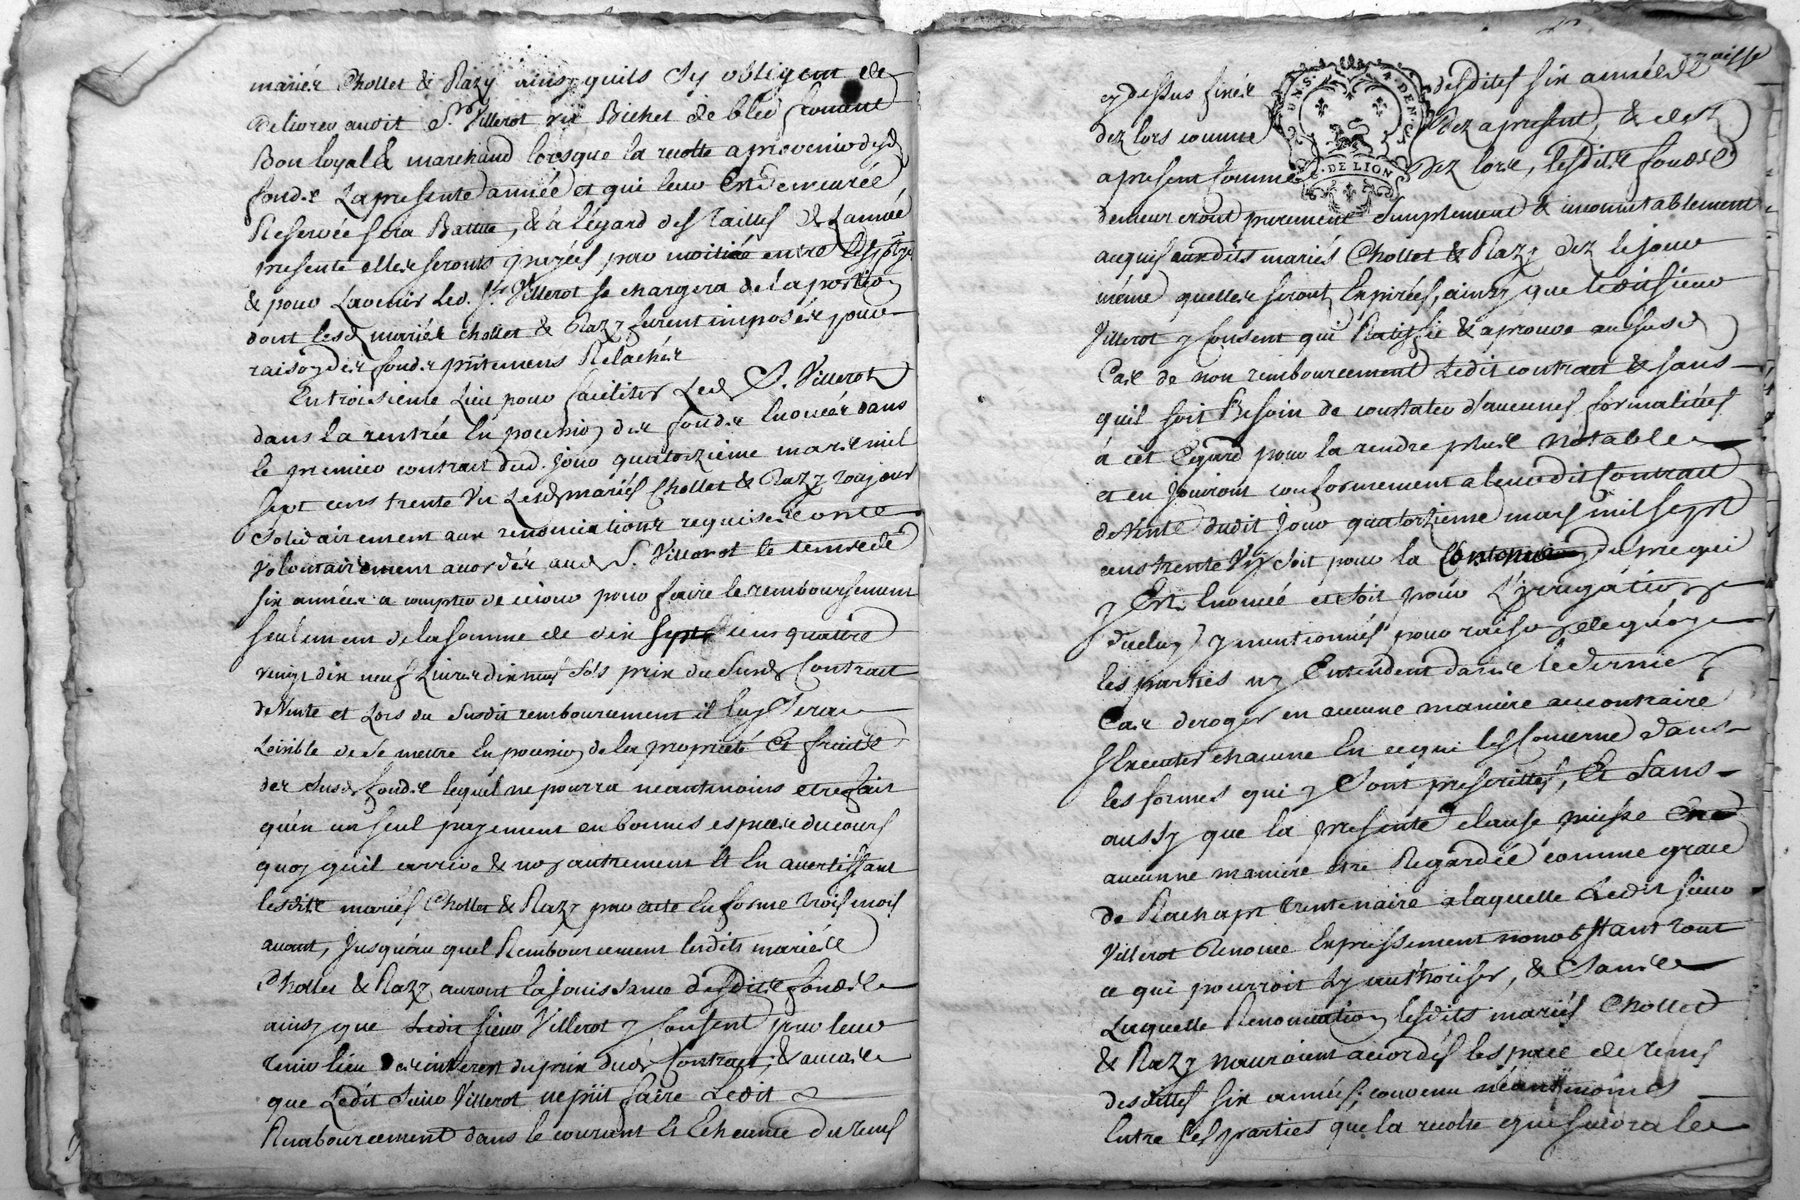 mariés Chollet & Razy ainsy quils sy obligent de
delivrer audit Sr. Villerot six Bichet de bled froment
Bon loyal & marchand lorsque la recolte a provenir desd
fonds La presente année et qui leur Est demeurée
Reservée sera Battue, & a légard des Tailles de Lannée
presente elles seront payées par moitié entre Les ptyes
& pour Lavenir Led. Sr. Villerot se chargera de la portion
dont lesd mariés Chollet & Razy furent imposés pour
raison des fonds pntemens Relachés
En troisieme Lieu pour faciliter Led S. Villerot
dans la rentrée En pocession des fonds Enoncés dans
le premier contrat dud. jour quatorzieme mars mil
sept cens trente six Lesd mariés Chollet & Razy toujours
solidairement aux renonciations requises onts
volontairement accordés aud S. Villerot le tems de
six années a compter de ce jour pour faire le remboursement
seulement de la somme de dix sept cens quattre
vingt dix neuf Livres dix neuf sols prix du susd Contrat
de Vente et Lors du susdit remboursement il luy sera
Loisible de se mettre En pocession de la propriété Et fruits
des susd fonds lequel ne pourra neantmoins etre fait
qu'en un seul payement en bonnes especes du cours
quoy quil arrive & non autrement Et En avertissant
lesdits mariés Chollet & Razy par acte En forme trois mois
avant, jusqu'au quel Remboursement lesdits mariés
Chollet & Razy auront la jouissance desdits fonds
ainsy que Ledit sieur Villerot y Consent pour leur
tenir lieu des interest du prix dud Contrat, & au cas
que Ledit sieur Villerot ne put faire Ledit
Remboursement dans le courant Et Echeance du tems
cy dessus fixé desdites six années
dez lors comme dez a present, & dez
a present comme dez lors, lesdits fonds
demeureront purement simplement & incommutablement
acquis auxdits mariés Chollet & Razy dez le jour
même quelles seront Expirées, ainsy que ledit sieur
Villerot y Consent qui Ratiffie & aprouve au susd
Cas de non remboursement Ledit contract & sans
quil soit Besoin de constater d'aucunes formalitées
à cet Egard pour la rendre plus Notable
et en jouiront conformement a lenoncé dit Contract
de Vente dudit jour quatorzieme mars mil sept
cens trente six soit pour la du pre qui
y Est Enoncé et soit pour L'irrigation
d'icluy y mentionnés pour raison de quoy
les parties ny Entendent dans le dernier
Cas deroger en aucune maniere au contraire
S'Executer chacune En ce qui les Concerne dans
les formes qui y Sont prescrittes, Et sans
aussy que la presente clause puisse En
aucunne maniere etre Regardée comme grace
de Rachapt trentenaire a laquelle Ledit sieur
Villerot Renonce Expressement nonobstant tout
ce qui pourroit Ly authoriser, & sans
Laquelle Renonciation lesdits mariés Chollet
& Razy nauroient accordés lespace de tems
desdittes six années; convenu néantmoins
Entre les parties que la recolte qui suivra le
G. DE LION